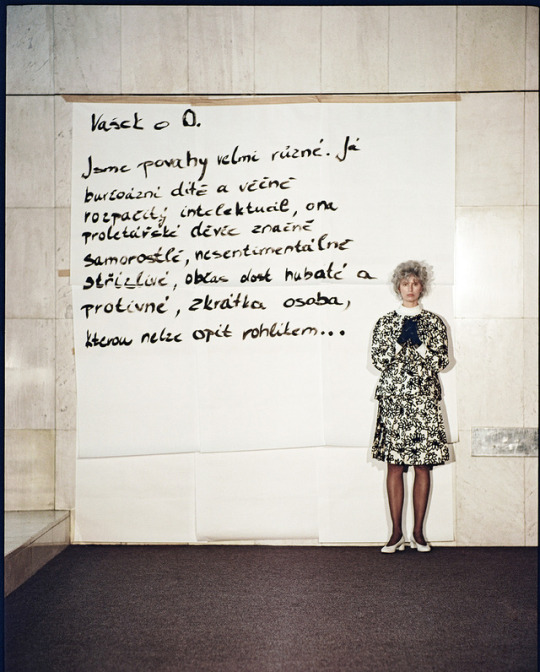 Vašek o O.
Jsme povahy velmi různé. Já
buržoázní dítě a věčně
rozpačitý intelektuál, ona
proletářské děvče značně
samorostlé, nesentimentálně
střízlivé, občas dost hubaté a
protivné, zkrátka osoba,
kterou nelze opít rohlíkem...